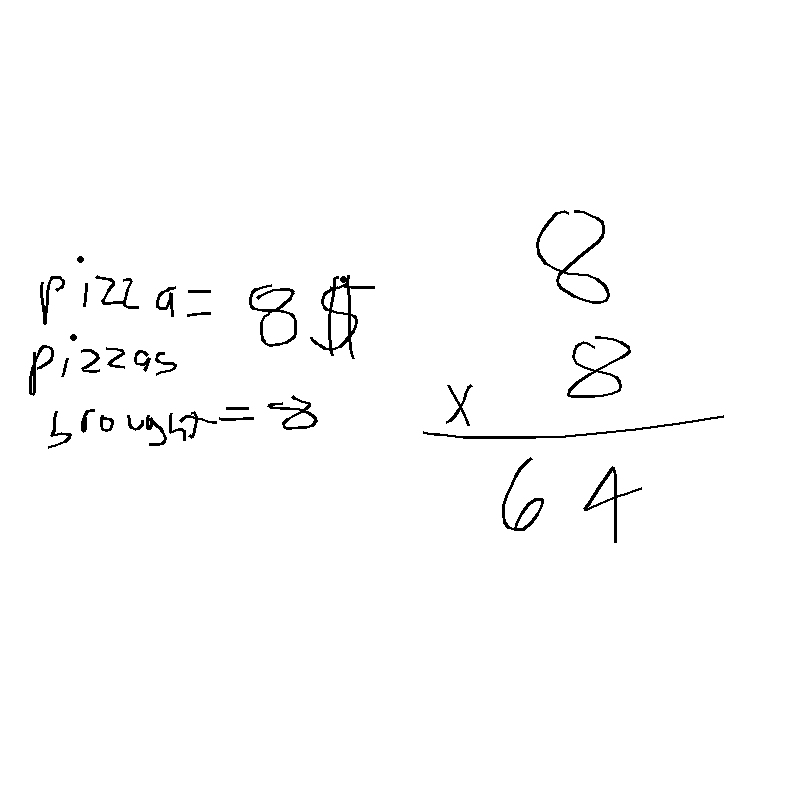 pizza = 8 $
pizzas
brought = 8
8
x 8
64